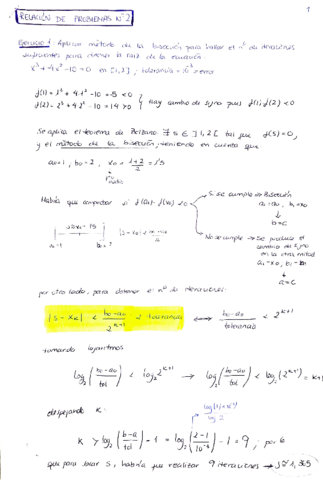 1
RELACIÓN DE PROBLEMAS Nº2
Ejercicio 1 Aplicar método de la bisección para hallar el nº de iteraciones
suficientes para obtener la raíz de la ecuación
x³+4x²-10=0 en [1,2]; tolerancia=10⁻³=error
f(1)=1³+4·1²-10=-5<0
f(2)=2³+4·2²-10=14>0 } hay cambio de signo pues f(1)·f(2)<0
Se aplica el teorema de Bolzano ∃ s ∈ ]1,2[ tal que f(s)=0,
y el método de la bisección, teniendo en cuenta que
a₀=1, b₀=2, x₀=(1+2)/2=1'5
Pto medio
Habría que comprobar si f(a₀)·f(x₀)<0
Si se cumple → Bisección
a₁=a₀, b₁=x₀
↓
b=c
No se cumple → Se produce el
cambio de signo
en la otra mitad
a₁=x₀, b₁=b₀
↓
a=c
x₀=1'5
a₀=1 b₀=2
por otro lado, para obtener el nº de iteraciones:
|s-xₖ| < (b₀-a₀)/2ᵏ⁺¹ < tolerancia ⟺ (b₀-a₀)/tolerancia < 2ᵏ⁺¹
tomando logaritmos
log₂((b₀-a₀)/tol) < log₂2ᵏ⁺¹ → log₂((b₀-a₀)/tol) < log₂(2ᵏ⁺¹)=k+1
despejando k:
log(1/10⁻³)
log 2
k > log₂((b-a)/tol)-1 = log₂((2-1)/10⁻³)-1=9; por lo
que para hallar s, habría que realizar 9 iteraciones →